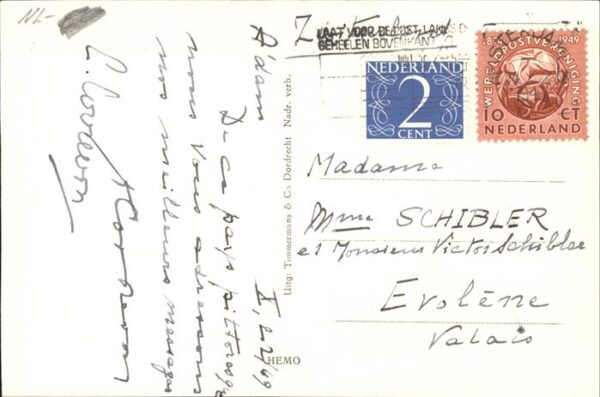 NL-
A'dam
De ce pays pittoresque
nous vous adressons
nos meilleurs messages
Uitg: Timmermans & Co Dordrecht Nadr. verb.
HEMO
LAAT VOOR DE POST
BOVENKANT
NEDERLAND
2
CENT
1949
WERELDPOSTVERENIGING
10 CT
NEDERLAND
Madame
Mme SCHIBLER
et Monsieur Victor Schibler
Evolène
Valais